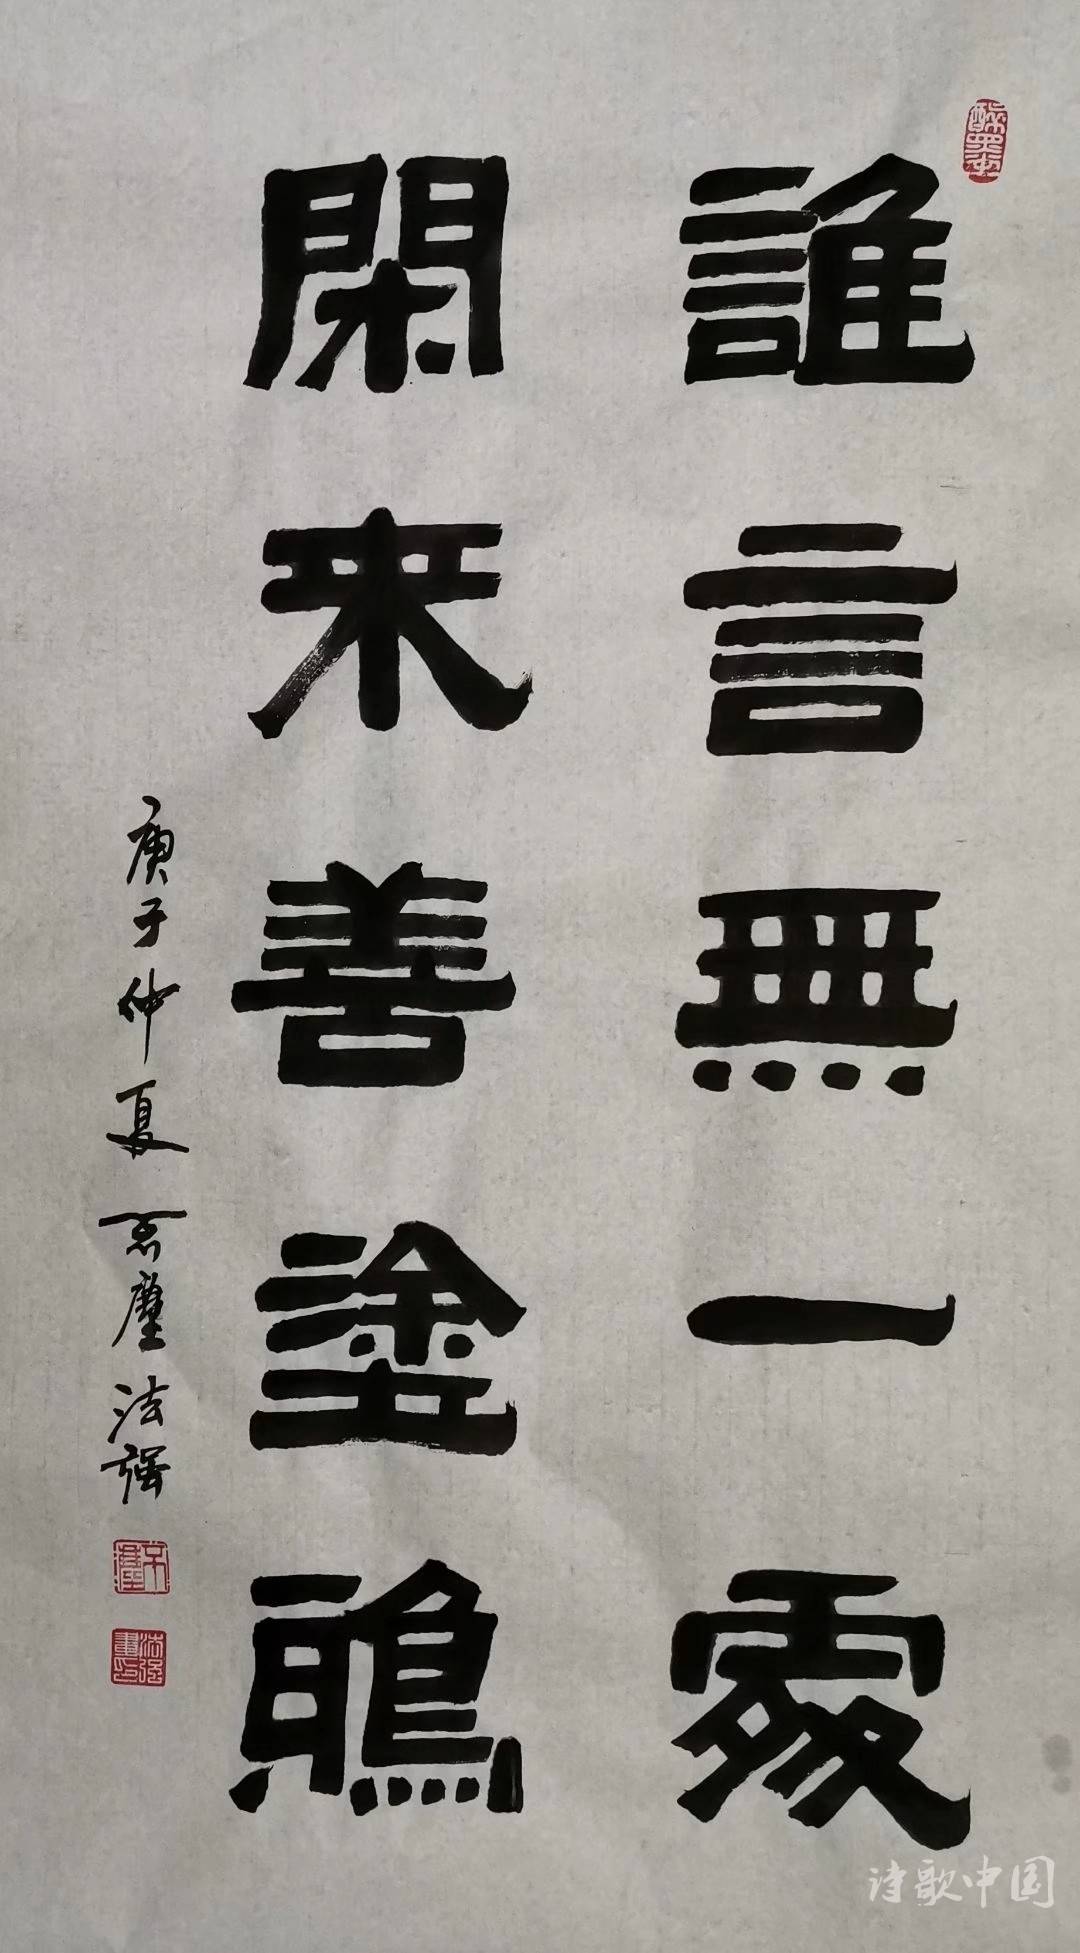 誰言無一處
閑来善塗鴉
庚子仲夏 不塵法强
诗歌中国